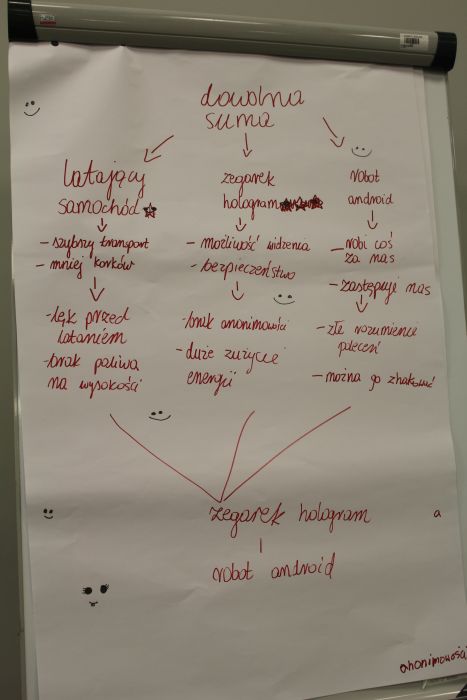 dowolna
suma
latający
samochód
- szybszy transport
- mniej korków
- lęk przed
lataniem
- brak paliwa
na wysokości
zegarek
hologram
- możliwość widzenia
- bezpieczeństwo
- brak anonimowości
- duże zużycie
energii
robot
android
- robi coś
za nas
- zastępuje nas
- złe rozumienie
poleceń
- można go zhakować
zegarek hologram
a
robot android
anonimowości